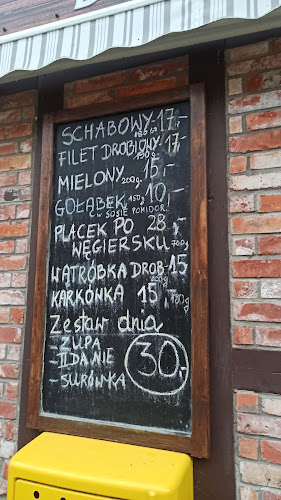 SCHABOWY 17,-
180G
FILET DROBIOWY 17,-
190g
MIELONY 200g 15,-
GOŁĄBEK 150g 10,-
W SOSIE POMIDOR.
PLACEK PO 28,-
WĘGIERSKU 700g
WĄTRÓBKA DROB. 15
200g
KARKÓWKA 15,-
180g
Zestaw dnia
- ZUPA
- II DANIE 30,-
- SURÓWKA